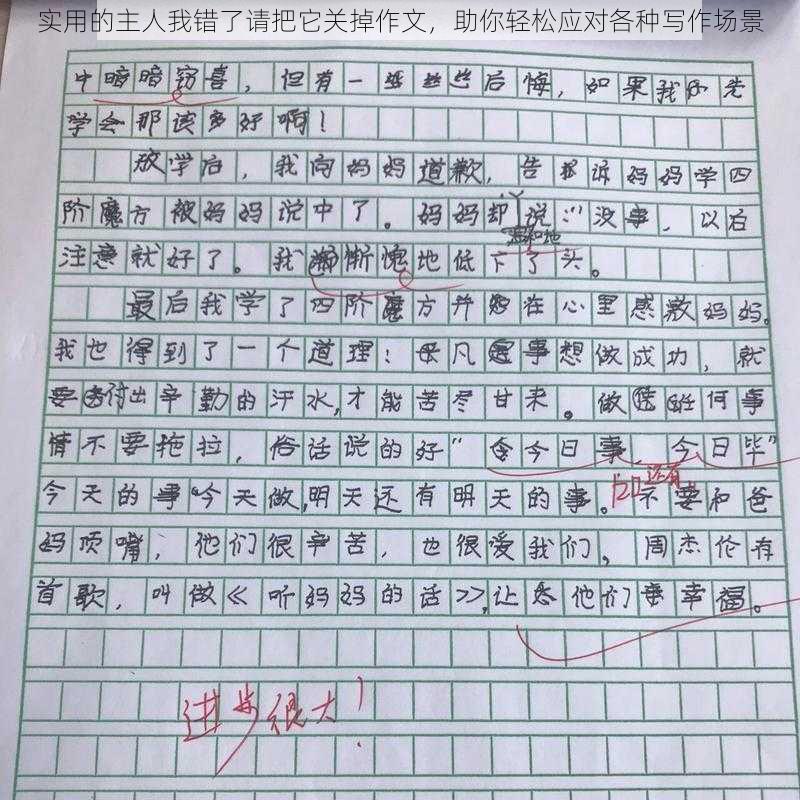 实用的主人我错了请把它关掉作文，助你轻松应对各种写作场景
中暗暗窃喜，但有一丝丝后悔，如果我先
学会那该多好啊！
放学后，我向妈妈道歉，告诉妈妈学四
阶魔方被妈妈说中了。妈妈却说：“没事，以后
温和地
注意就好了。我惭愧地低下了头。
最后我学了四阶魔方并在心里感激妈妈。
我也得到了一个道理：每凡事想做成功，就
要付出辛勤的汗水，才能苦尽甘来。做任何事
情不要拖拉，俗话说的好“今日事，今日毕”
今天的事今天做，明天还有明天的事。不要和爸
还有
妈顶嘴，他们很辛苦，也很爱我们。周杰伦有
首歌，叫做《听妈妈的话》，让他们幸福。
进步很大！